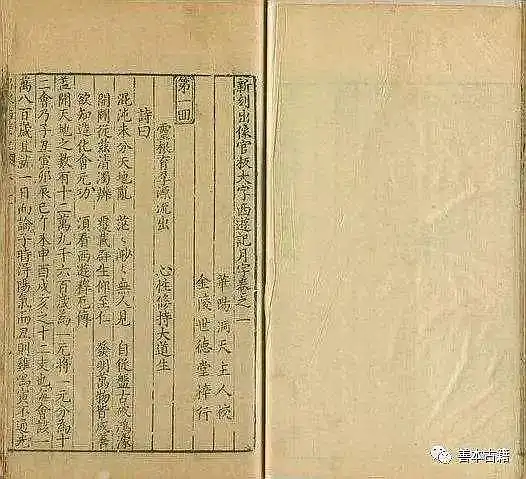 新刻出像官板大字西遊記月字卷之一
華陽洞天主人校
金陵世德堂梓行
第一回
靈根育孕源流出 心性修持大道生
詩曰
混沌未分天地亂 茫〻渺〻無人見 自從盤古破鴻濛
開闢從茲清濁辨 覆載群生仰至仁 發明萬物皆成善
欲知造化會元功 須看西遊釋厄傳
蓋聞天地之數有十二萬九千六百歲為一元將一元分為十
二會乃子丑寅卯辰巳午未申酉戌亥之十二支也每會該一
萬八百歲且就一日而論子時得陽氣而丑則雞鳴寅不通光
善本古籍